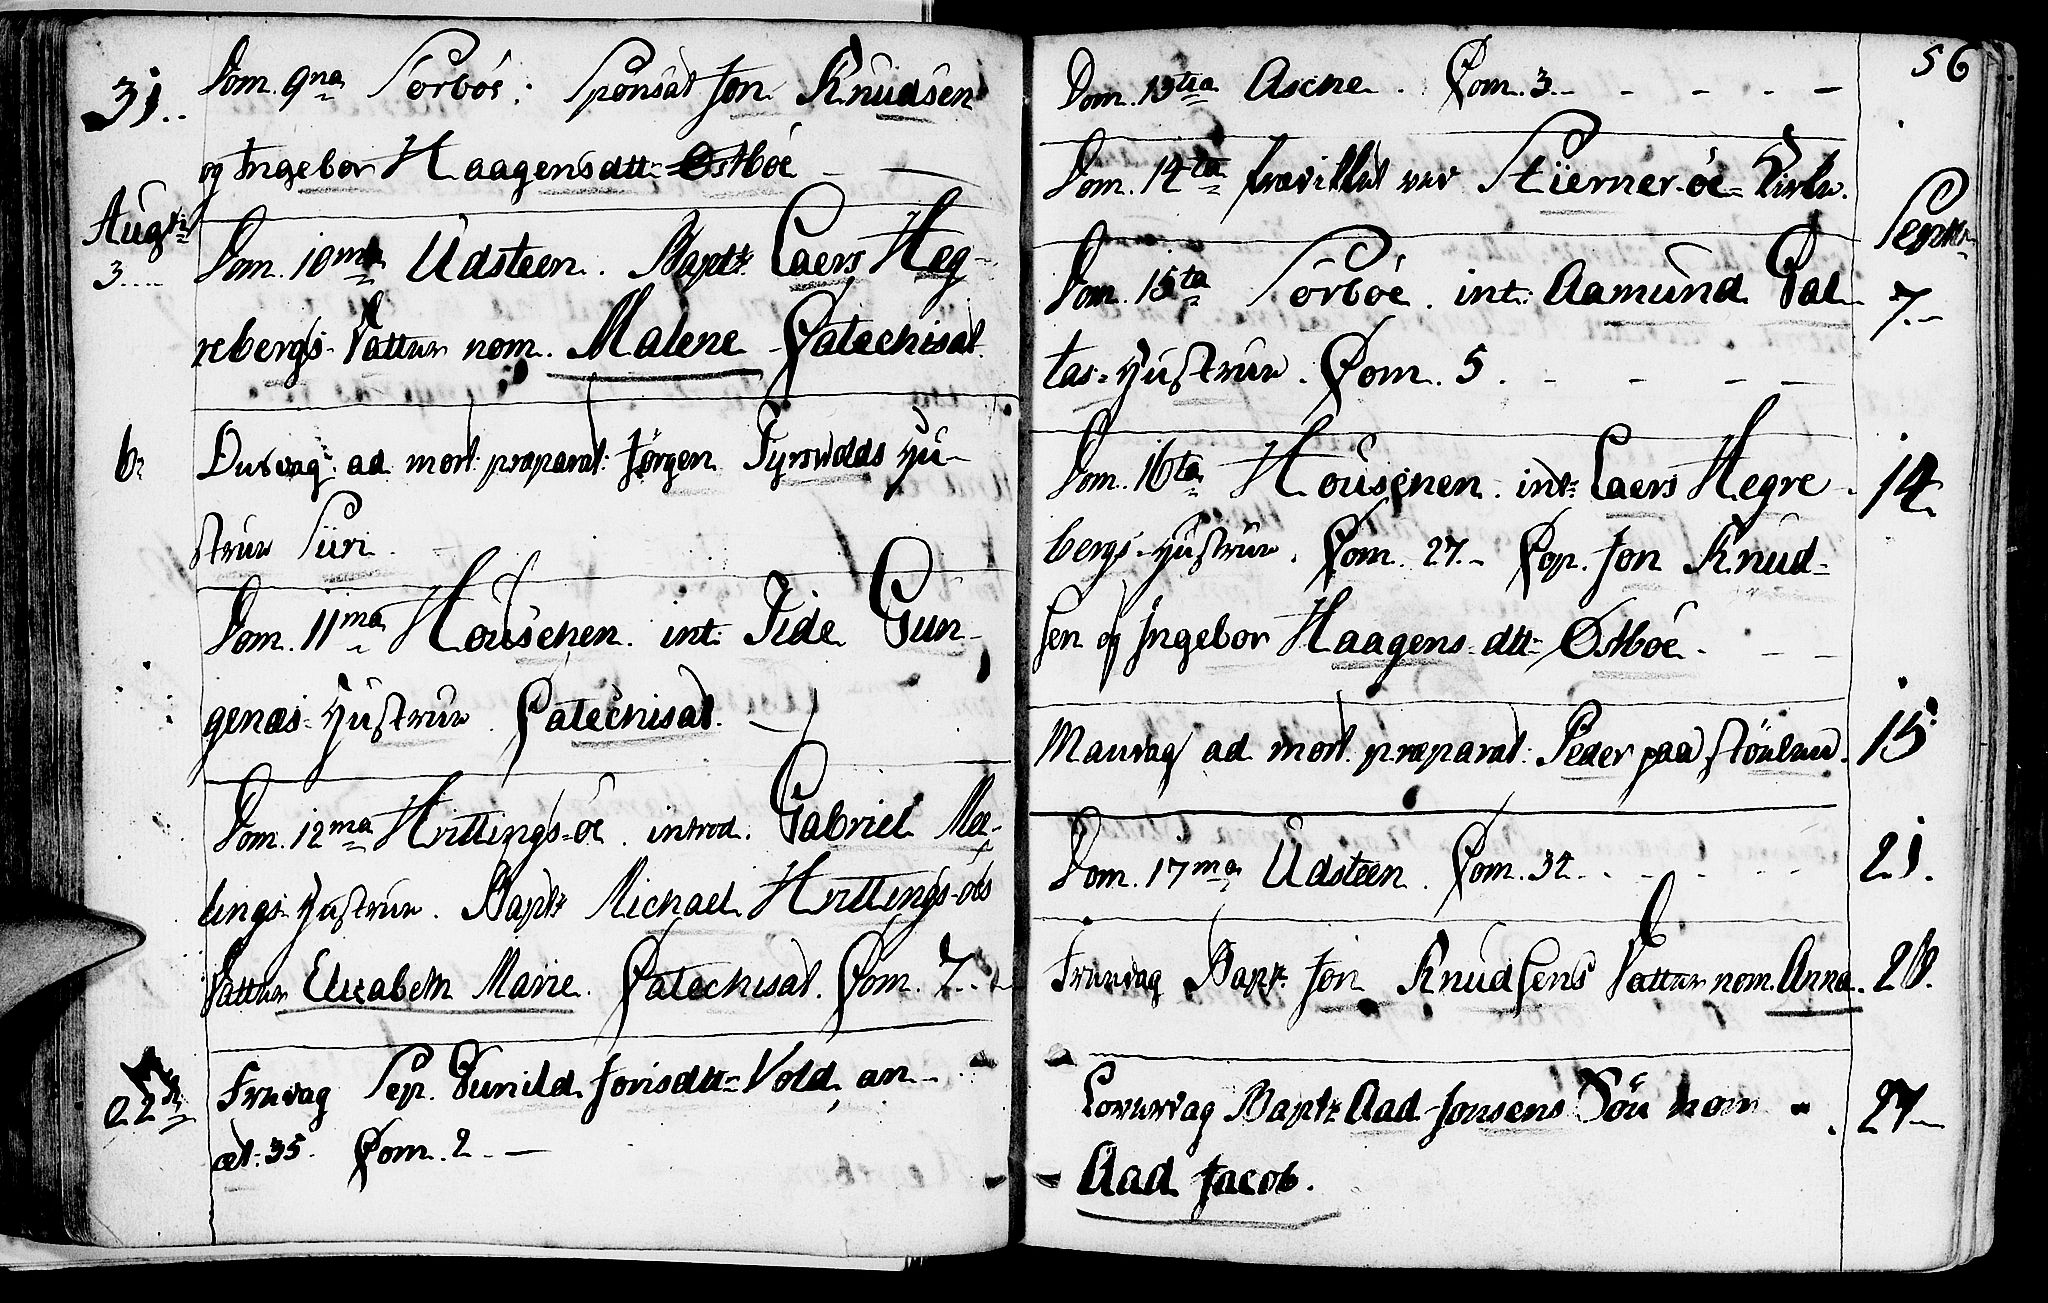 31.. Dom. 9na Sørbøe: Sponsat Jon Knudsen
og Ingebor Haagensdtt: Østbøe
Augti
3.... Dom. 10ma Udsteen. Bapt: Laers Heg-
rebergs Datter nom. Malene Catechisat.
6. Onsdag: ad mort: præparat: Jørgen Tyrswolds Hu-
strue Siiri.
Dom. 11ma Houschen. int: Tide Gun-
genæs Hustrue. Catechisat.
Dom. 12ma Hvittings-øe. introd. Gabriel Mee-
lings Hustrue. Bapt: Michael Hvittings-øes
Datter Elisabeth Marie. Catechisat. Com. 7..
22 Fredag Sep. Gunild Jonsdtt: Vold, an-
æt: 35. Com. 2. —
56
Dom. 13tia Asche. Com. 3.. - - - -
Dom. 14ta prædiket ved Stierner-øe Kirke.
Septbr:
Dom. 15ta Sørbøe. int: Aamund Gal- 7.-
tas Hustrue. Com. 5. - - - -
Dom. 16ta Houschen. int: Laers Hegre- 14.
bergs Hustrue. Com. 27.- Cop. Jon Knud-
sen og Ingebor Haagens dtt: Østbøe. - -
Mandag ad mort. præparat: Peder paa Stöelen. 15.
Dom. 17ma Udsteen. Com. 34. . - - - 21.
Fredag Bapt: Jon Knudsens Datter nom. Anna. 26.
Løverdag Bapt: Aad Jonsens Søn nom 27-
Aad Jacob.